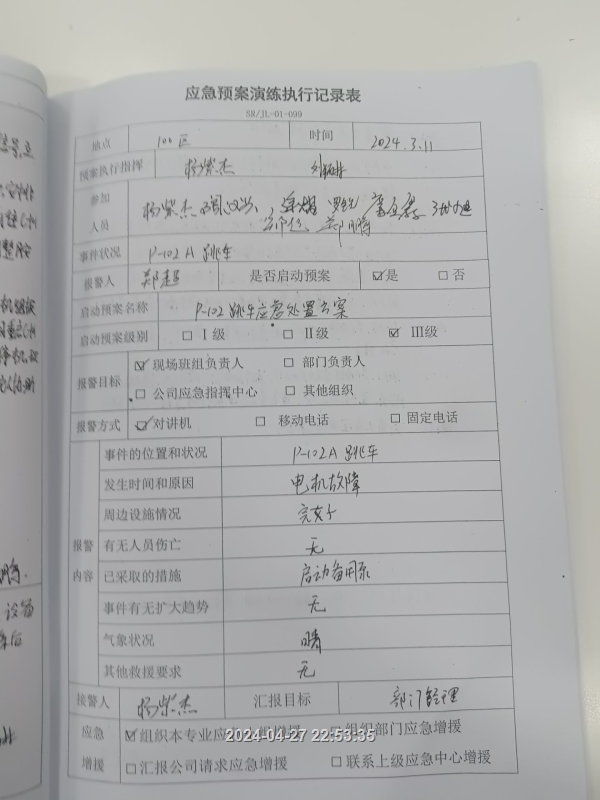 应急预案演练执行记录表
SR/JL-01-099
地点 100区 时间 2024.3.11
预案执行指挥 杨柴杰
参加 杨柴杰
人员 郑腾
事件状况 P-102A 跳车
报警人 郑超 是否启动预案 ☑是 □否
启动预案名称 P-102跳车应急处置方案
启动预案级别 □Ⅰ级 □Ⅱ级 ☑Ⅲ级
报警目标 ☑现场班组负责人 □部门负责人
□公司应急指挥中心 □其他组织
报警方式 ☑对讲机 □移动电话 □固定电话
报警内容
事件的位置和状况 P-102A 跳车
发生时间和原因 电机故障
周边设施情况 完好
有无人员伤亡 无
已采取的措施 启动备用泵
事件有无扩大趋势 无
气象状况 晴
其他救援要求 无
接警人 杨柴杰 汇报目标 部门经理
应急 ☑组织本专业应 增援 □组织部门应急增援
2024-04-27 22:53:35
增援 □汇报公司请求应急增援 □联系上级应急中心增援